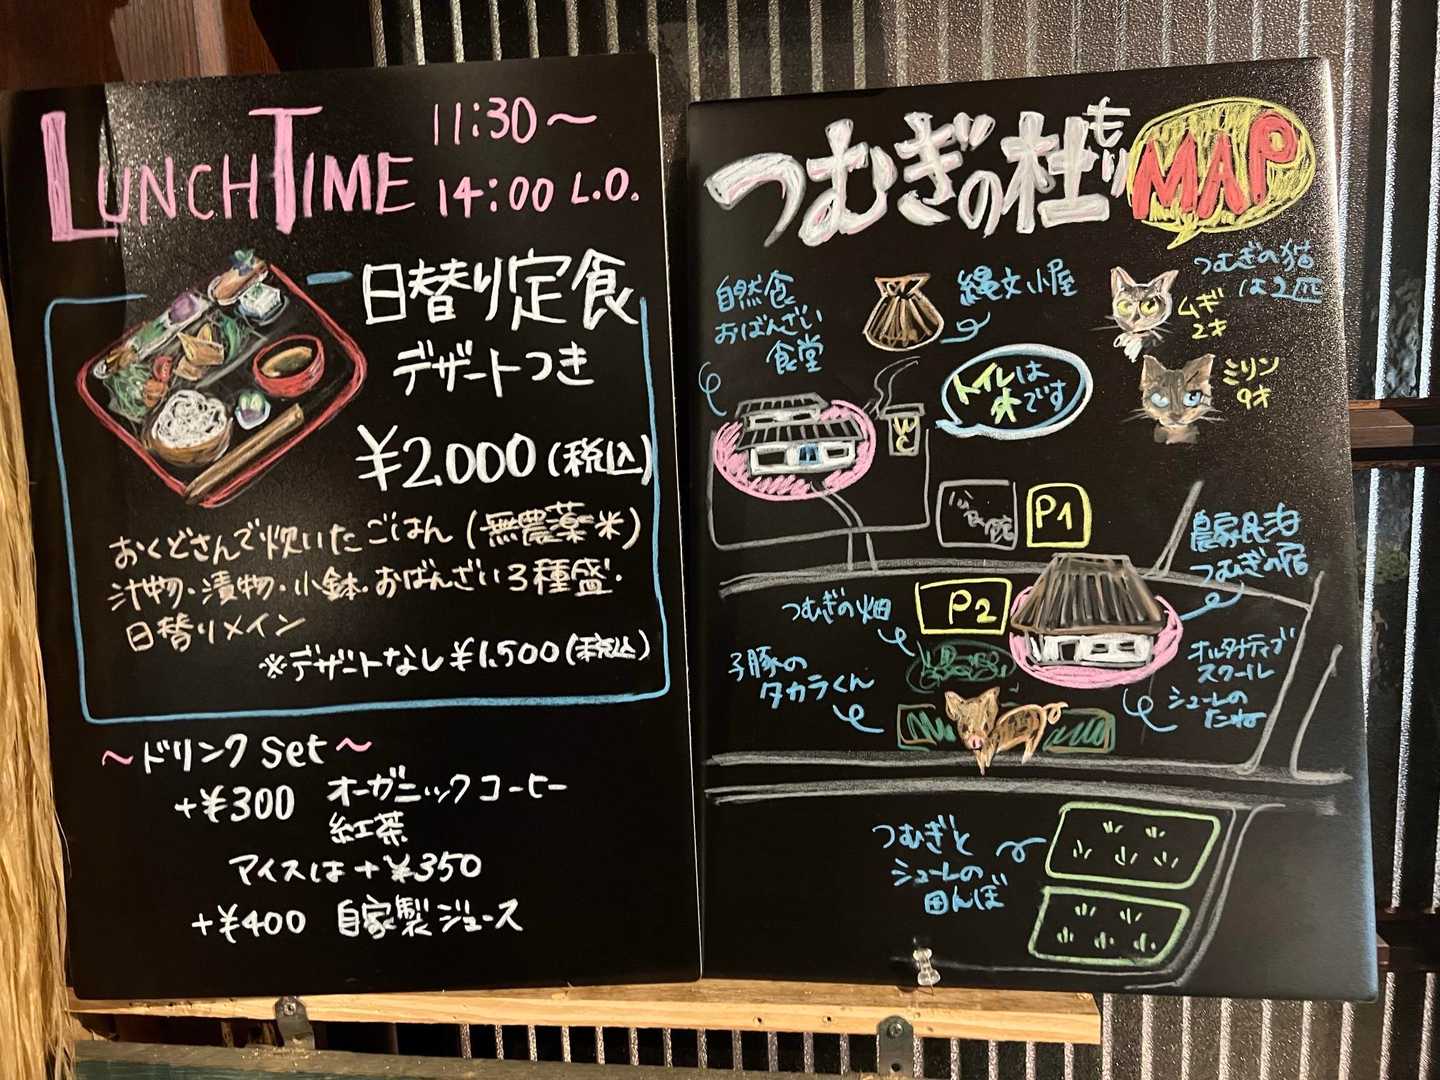 LUNCH TIME 11:30〜
14:00 L.O.
日替り定食
デザートつき
¥2.000(税込)
おくどさんで炊いたごはん(無農薬米)
汁物・漬物・小鉢・おばんざい3種盛・
日替りメイン
※デザートなし¥1.500(税込)
〜ドリンクset〜
+¥300 オーガニックコーヒー
紅茶
アイスは+¥350
+¥400 自家製ジュース
つむぎの杜 もり MAP
自然食
おばんざい
食堂
縄文小屋
つむぎの猫
は2匹
ムギ
2才
ミリン
9才
トイレは
外です
WC
P1
農家民泊
つむぎの宿
P2
つむぎの畑
子豚の
タカラくん
オルタナティブ
スクール
シューレの
たね
つむぎと
シューレの
田んぼ